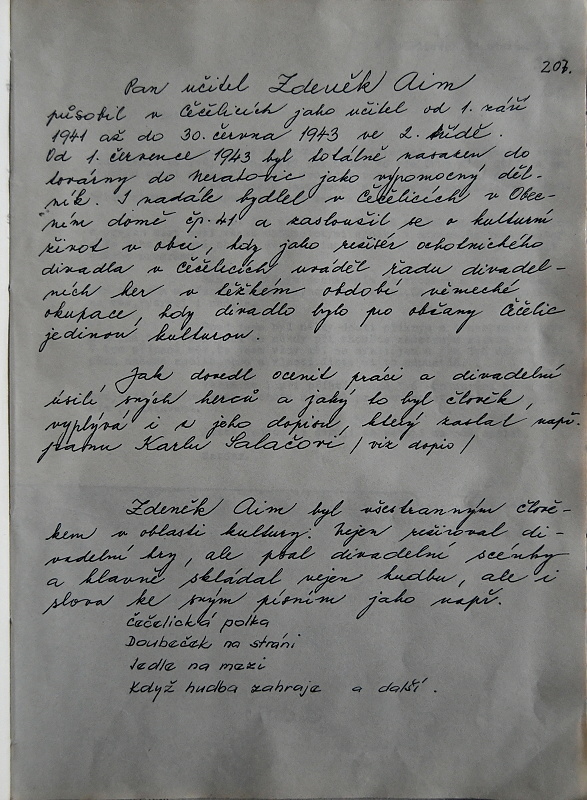 207.
Pan učitel Zdeněk Aim
působil v Čečelicích jako učitel od 1. září
1941 až do 30. června 1943 ve 2. třídě.
Od 1. července 1943 byl totálně nasazen do
továrny do Neratovic jako výpomocný děl-
ník. I nadále bydlel v Čečelicích v Obec-
ním domě čp. 41 a zasloužil se o kulturní
život v obci, kdy jako režisér ochotnického
divadla v Čečelicích uváděl řadu divadel-
ních her v těžkém období německé
okupace, kdy divadlo bylo pro občany Čečelic
jedinou kulturou.
Jak dovedl ocenit práci a divadelní
úsilí svých herců a jaký to byl člověk,
vyplývá i z jeho dopisu, který zaslal např.
panu Karlu Salačovi / viz dopis /
Zdeněk Aim byl všestranným člově-
kem v oblasti kultury. Nejen režíroval di-
vadelní hry, ale psal divadelní scénky
a hlavně skládal nejen hudbu, ale i
slova ke svým písním jako např.
Čečelická polka
Doubeček na stráni
Jedle na mezi
Když hudba zahraje a další.